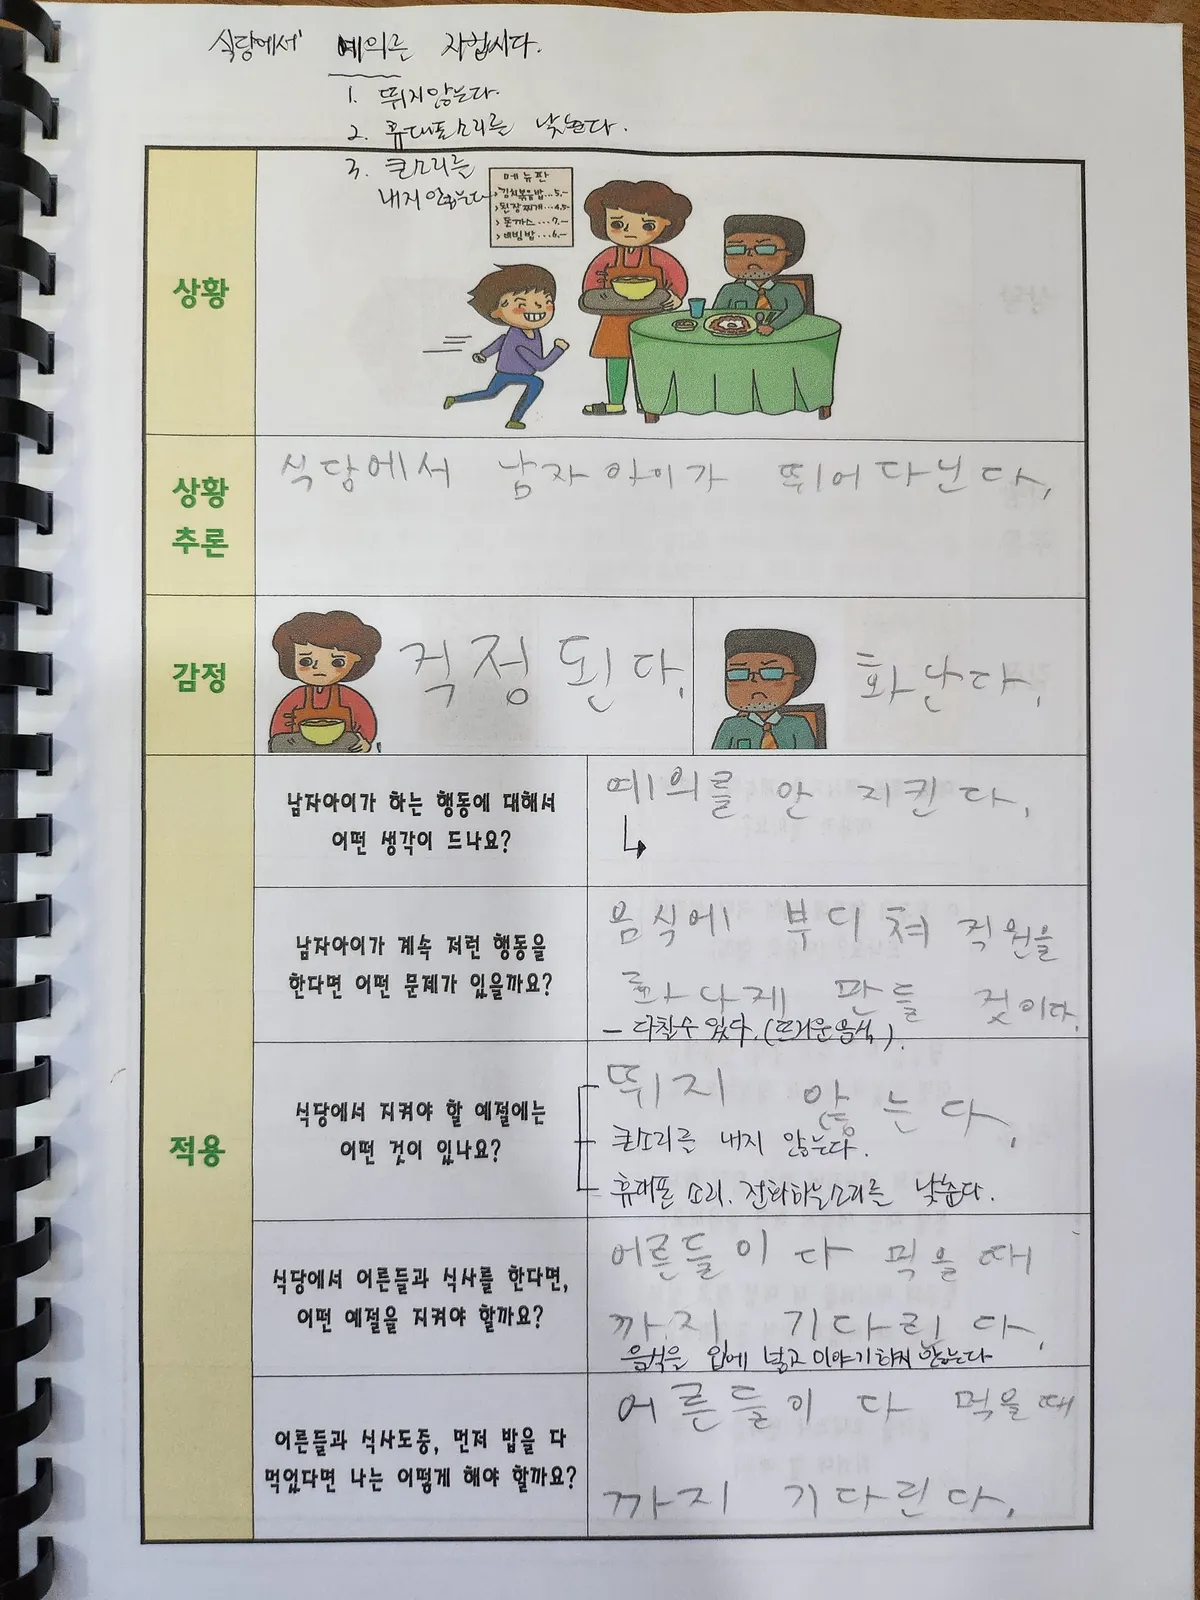 식당에서 예의를 지킵시다.
1. 뛰지않는다.
2. 휴대폰소리를 낮춘다.
3. 큰소리를
내지 않는다
메뉴판
김치볶음밥...5,-
>된장찌개...4,5-
>돈까스...7,-
>비빔밥...6,-
상황
상황
추론
식당에서 남자아이가 뛰어다닌다.
감정
걱정된다.
화난다.
적용
남자아이가 하는 행동에 대해서
어떤 생각이 드나요?
예의를 안 지킨다.
남자아이가 계속 저런 행동을
한다면 어떤 문제가 있을까요?
음식에 부디쳐 직원을
화나게 만들 것이다.
- 다칠수 있다.(뜨거운음식).
식당에서 지켜야 할 예절에는
어떤 것이 있나요?
뛰지 않는다.
큰소리를 내지 않는다.
휴대폰 소리. 전화하는소리를 낮춘다.
식당에서 어른들과 식사를 한다면,
어떤 예절을 지켜야 할까요?
어른들이 다 먹을 때
까지 기다린다.
음식을 입에 넣고 이야기하지 않는다
어른들과 식사도중, 먼저 밥을 다
먹었다면 나는 어떻게 해야 할까요?
어른들이 다 먹을때
까지 기다린다.